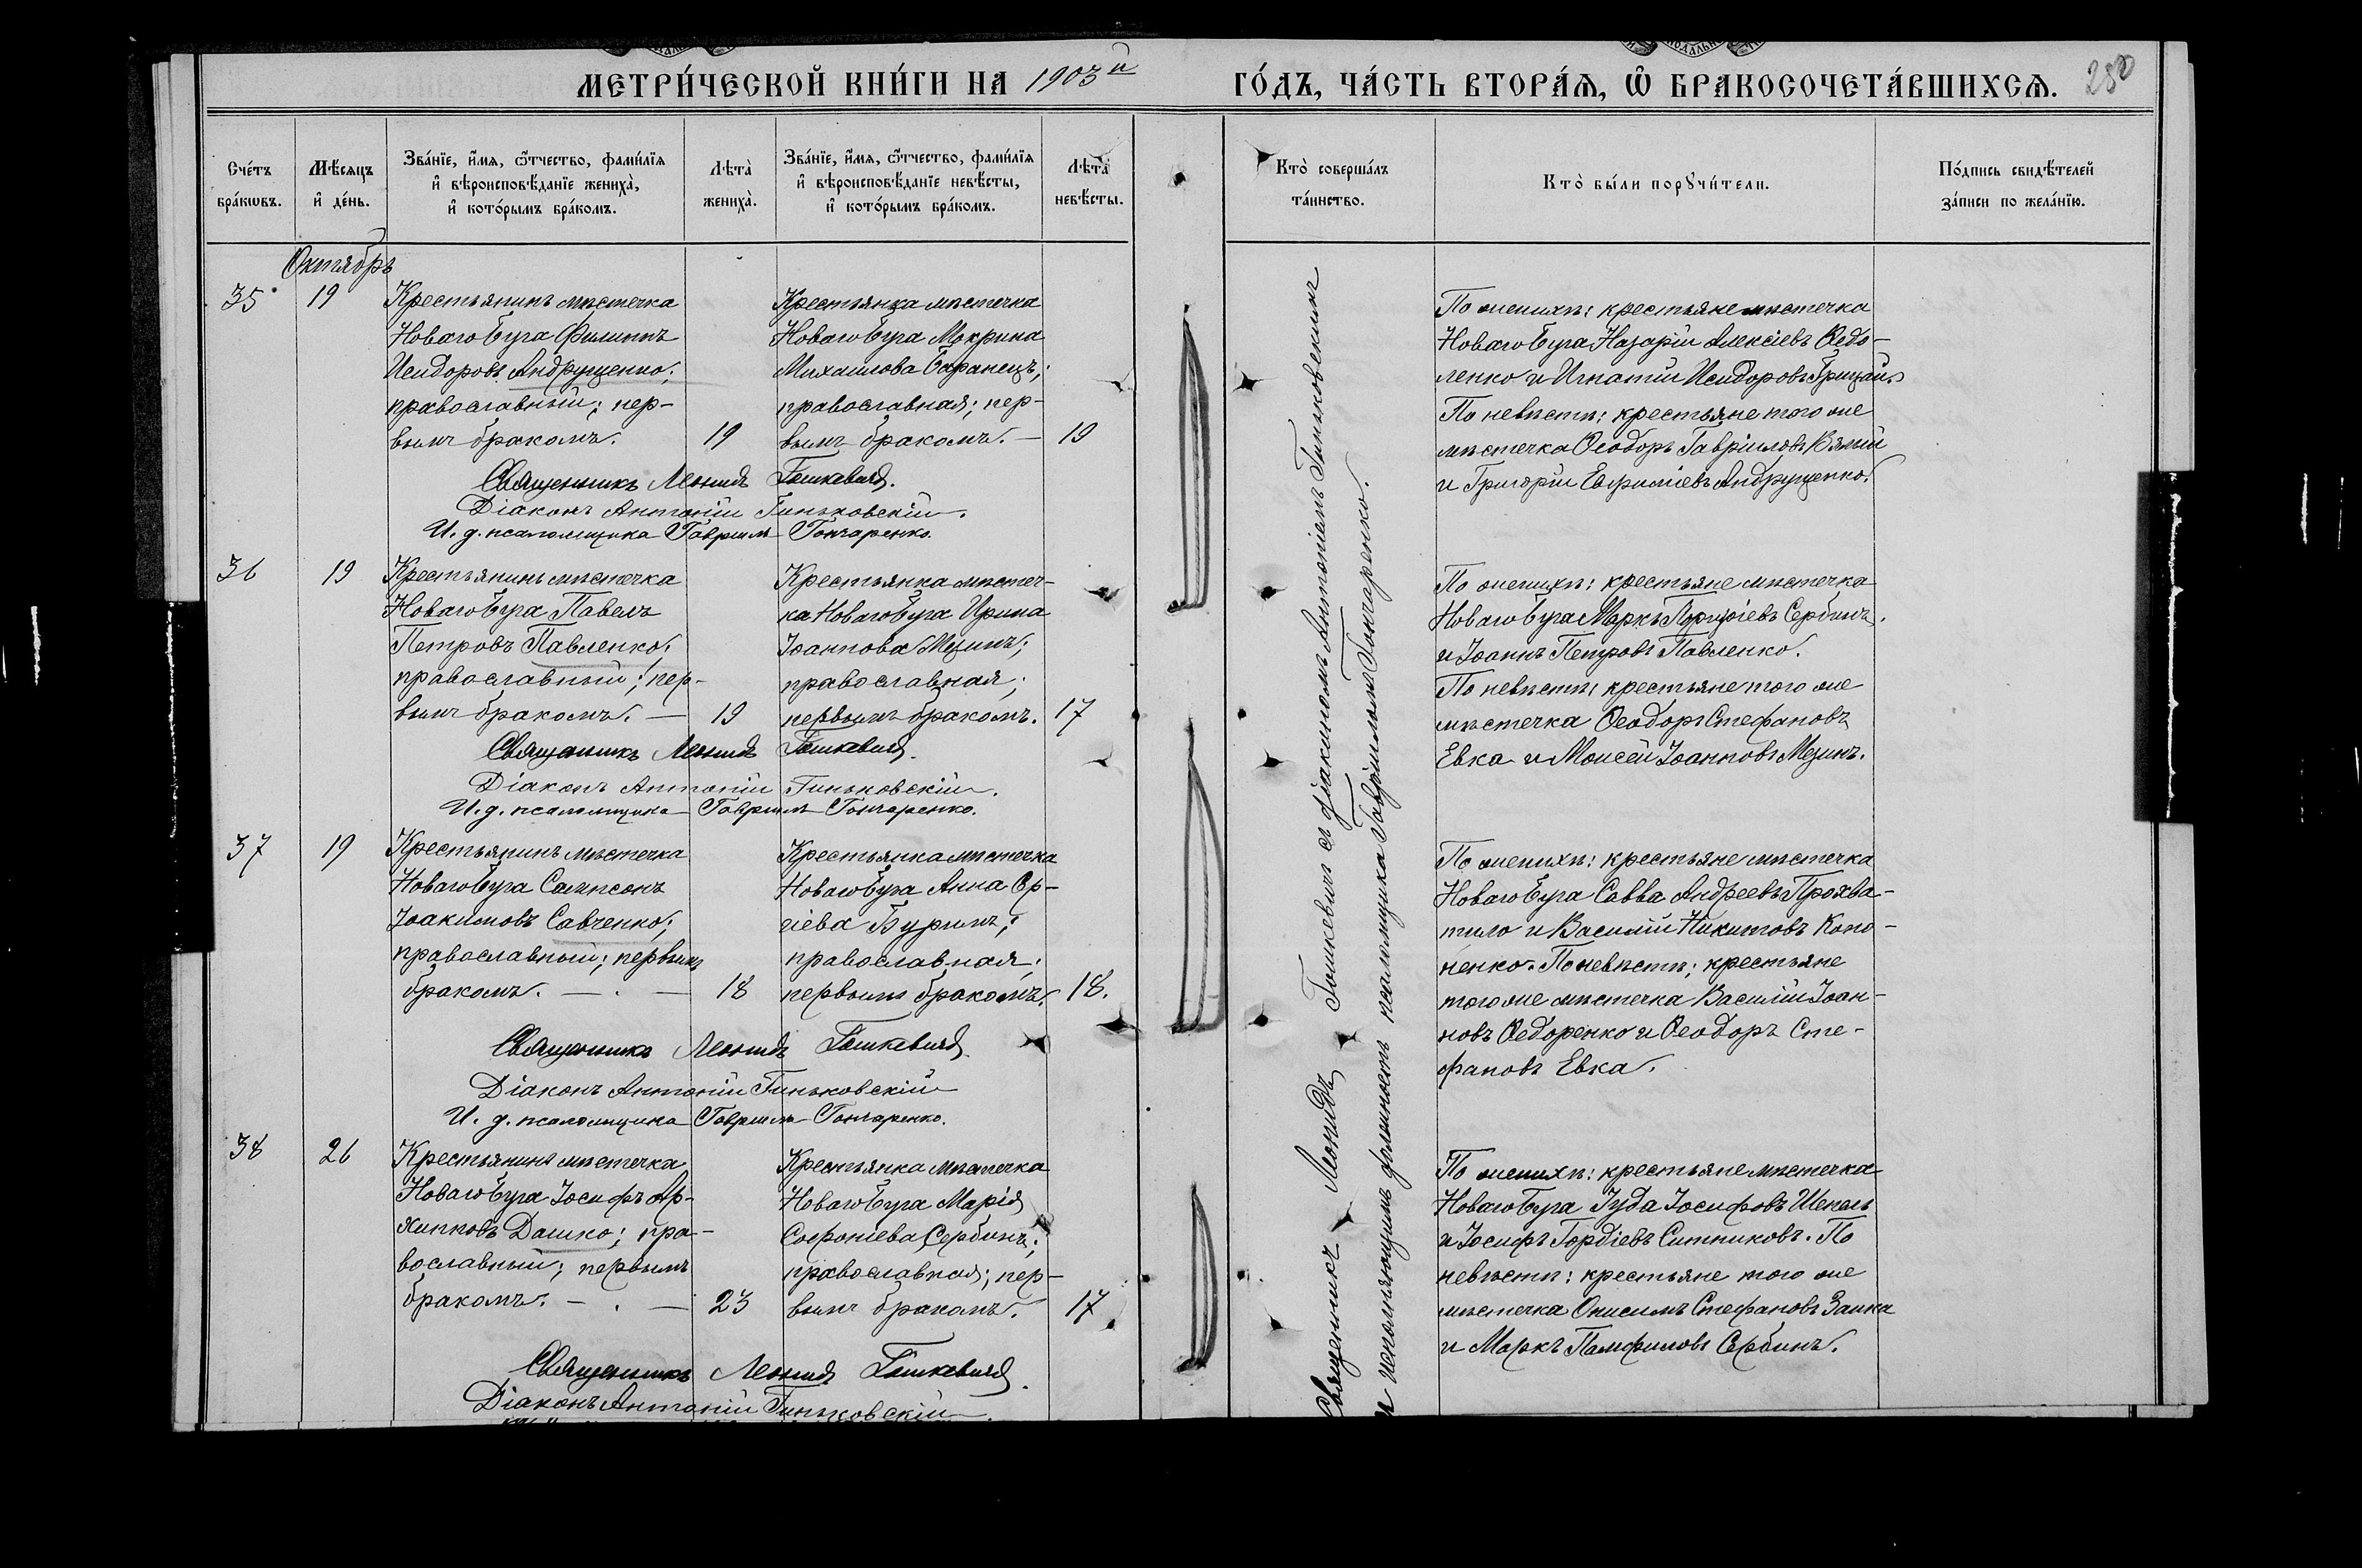 МЕТРИ́ЧЕСКОЙ КНИ́ГИ НА 1903й ГО́ДЪ, ЧА́СТЬ ВТОРА́Ѧ, Ѽ БРАКОСОЧЕТА́ВШИХСѦ. 280
Сче́тъ бра́кѡвъ.
Мѣ́сяцъ и҆ де́нь.
Зва́нїе, и҆́мѧ, ѻ҆́тчество, фами́лїѧ
и҆ вѣроисповѣ́данїе жениха̀,
и҆ кото́рымъ бра́комъ.
Лѣта̀ жениха̀.
Зва́нїе, и҆́мѧ, ѻ҆́тчество, фами́лїѧ
и҆ вѣроисповѣ́данїе невѣ́сты,
и҆ кото́рымъ бра́комъ.
Лѣта̀ невѣ́сты.
Кто̀ соверша́лъ
та́инство.
Кто̀ бы́ли порꙋчи́тели.
По́дпись свидѣ́телей
за́писи по жела́нїю.
Октябрь
35
19
Крестьянинъ мѣстечка
Новаго Буга Филиппъ
Исидоровъ Андрущенко;
православный; пер-
вымъ бракомъ.
19
Крестьянка мѣстечка
Новаго Буга Мокрина
Михаилова Баранецъ;
православная; пер-
вымъ бракомъ. —
19
По женихѣ: крестьяне мѣстечка
Новаго Буга Назарій Алексіевъ Ѳедо-
ленко и Игнатій Исидоровъ Грицай.
По невѣстѣ: крестьяне того же
мѣстечка Ѳеодоръ Гавріиловъ Вялый
и Григорій Евфиміевъ Андрущенко.
Священникъ Леонидъ Гошкевичъ.
Діаконъ Антоній Гиньковскій.
И. д. псаломщика Гавріилъ Гончаренко.
36
19
Крестьянинъ мѣстечка
Новаго Буга Павелъ
Петровъ Павленко;
православный; пер-
вымъ бракомъ. —
19
Крестьянка мѣстеч-
ка Новаго Буга Ирина
Іоаннова Мезинъ;
православная;
первымъ бракомъ.
17
По женихѣ: крестьяне мѣстечка
Новаго Буга Маркъ Порфиріевъ Сербинъ
и Іоаннъ Петровъ Павленко.
По невѣстѣ: крестьяне того же
мѣстечка Ѳеодоръ Стефановъ
Евка и Моисей Іоанновъ Мезинъ.
Священникъ Леонидъ Гошкевичъ.
Діаконъ Антоній Гиньковскій.
И. д. псаломщика Гавріилъ Гончаренко.
37
19
Крестьянинъ мѣстечка
Новаго Буга Сампсонъ
Іоакимовъ Савченко;
православный; первымъ
бракомъ. — . —
18
Крестьянка мѣстечка
Новаго Буга Анна Ер-
гіева Буримъ;
православная;
первымъ бракомъ.
18.
По женихѣ: крестьяне мѣстечка
Новаго Буга Савва Андреевъ Прохва-
тило и Василій Никитовъ Коно-
ненко. По невѣстѣ: крестьяне
того же мѣстечка Василій Іоан-
новъ Ѳедоренко и Ѳеодоръ Сте-
фановъ Евка.
Священникъ Леонидъ Гошкевичъ.
Діаконъ Антоній Гиньковскій
И. д. псаломщика Гавріилъ Гончаренко.
38
26
Крестьянинъ мѣстечка
Новаго Буга Іосифъ Ар-
хипповъ Дашко; пра-
вославный; первымъ
бракомъ. — . —
23
Крестьянка мѣстечка
Новаго Буга Марія
Софоніева Сербинъ;
православная; пер-
вымъ бракомъ.
17
По женихѣ: крестьяне мѣстечка
Новаго Буга Іуда Іосифовъ Шепель
и Іосифъ Гордіевъ Ситниковъ. По
невѣстѣ: крестьяне того же
мѣстечка Онисимъ Стефановъ Заика
и Маркъ Памфиловъ Сербинъ.
Священникъ Леонидъ Гошкевичъ.
Діаконъ Антоній Гиньковскій.
Священникъ Леонидъ Гошкевичъ съ діакономъ Антоніемъ Гиньковскимъ
и исполняющимъ должность псаломщика Гавріиломъ Гончаренко.